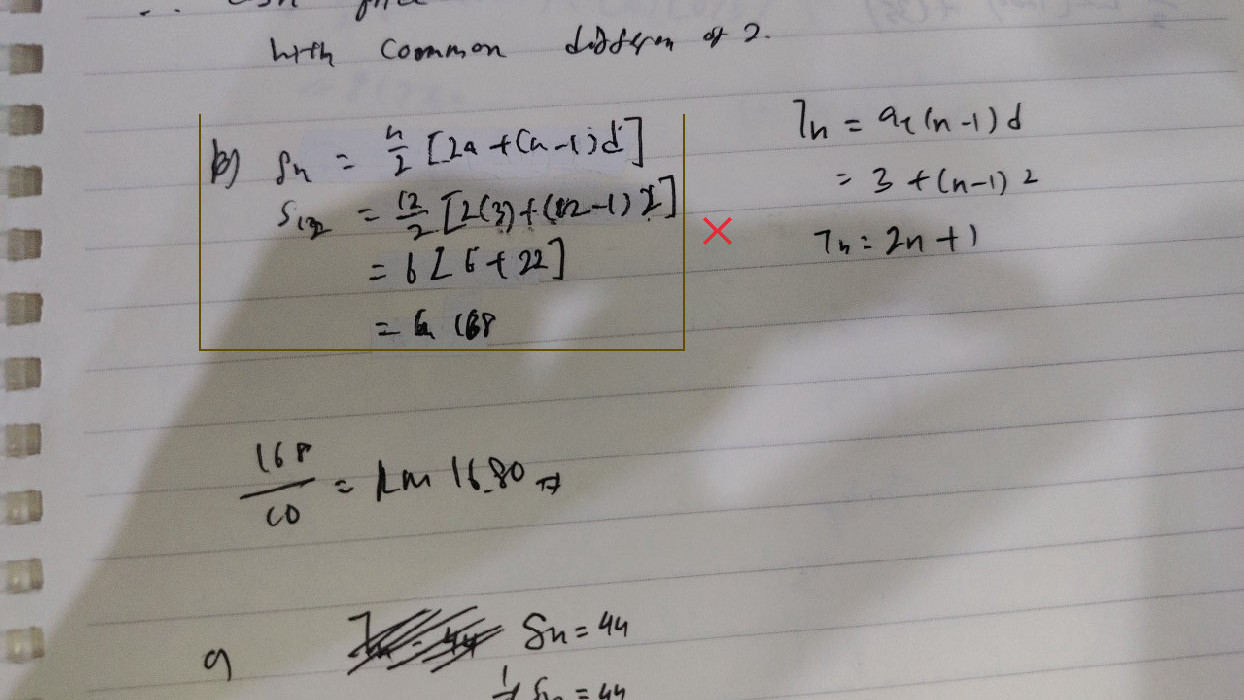 with common of 2.
b) Sn = n/2 [2a + (n-1)d]
S12 = 12/2 [2(3) + (12-1) 2]
= 6 [6 + 22]
= 168
Tn = a + (n-1) d
= 3 + (n-1) 2
Tn = 2n + 1
168/10 = RM 16.80
9 Sn = 44
= 44